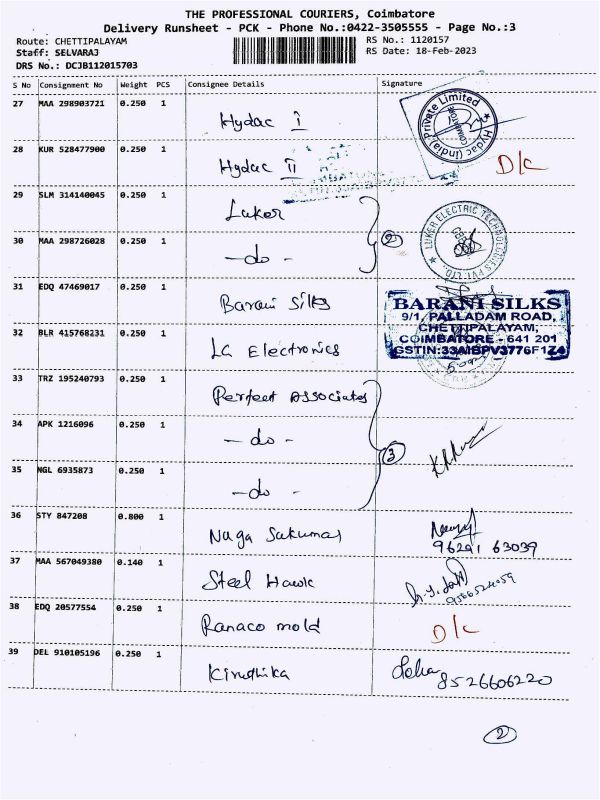 THE PROFESSIONAL COURIERS, Coimbatore
Delivery Runsheet - PCK - Phone No.:0422-3505555 - Page No.:3
Route: CHETTIPALAYAM RS No.: 1120157
Staff: SELVARAJ RS Date: 18-Feb-2023
DRS No.: DCJB112015703
S No Consignment No Weight PCS Consignee Details Signature
27 MAA 298903721 0.250 1 Hydac I
Hydac (India) Private Limited
COIMBATORE
28 KUR 528477900 0.250 1 Hydac II D/c
29 SLM 314140045 0.250 1 Luker
LUKER ELECTRIC TECHNOLOGIES PVT. LTD.
30 MAA 298726028 0.250 1 -do- 2
31 EDQ 47469017 0.250 1 Barani Silks
BARANI SILKS
9/1, PALLADAM ROAD,
CHETTIPALAYAM,
COIMBATORE - 641 201
GSTIN:33AIBPV3776F1Z4
32 BLR 415768231 0.250 1 LA Electronics
33 TRZ 195240793 0.250 1 Perfect Associates
34 APK 1216096 0.250 1 -do- 3
35 NGL 6935873 0.250 1 -do-
36 STY 847208 0.800 1 Naga Sukumar
96291 63039
37 MAA 567049380 0.140 1 Steel Hawk
9566524059
38 EDQ 20577554 0.250 1 Ranaco mold D/c
39 DEL 910105196 0.250 1 Kiruthika
8526606220
2